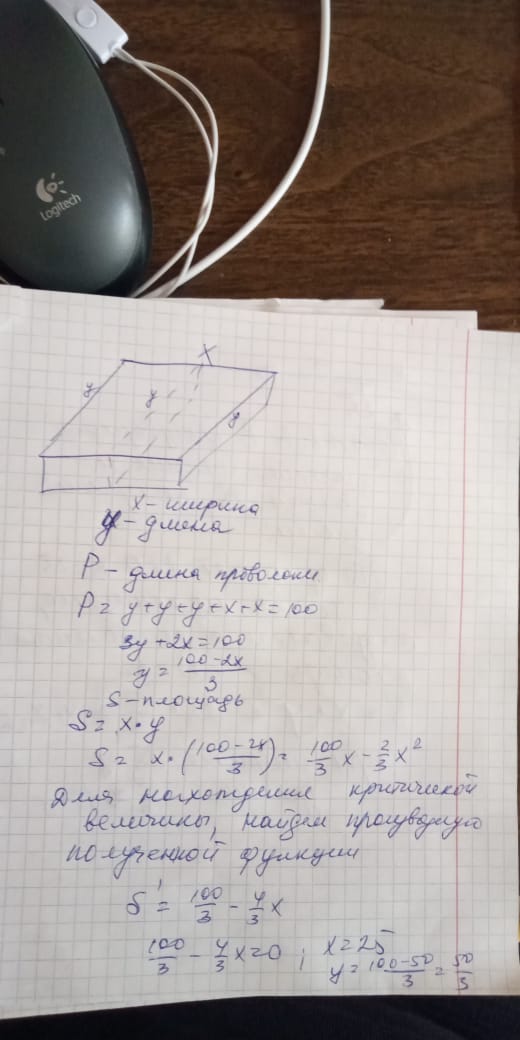 Logitech
x
y
y
y
x - ширина
y - длина
P - длина проволоки
P = y+y+y+x+x=100
3y+2x=100
y = \frac{100-2x}{3}
S - площадь
S = x·y
S = x·(\frac{100-2x}{3}) = \frac{100}{3}x - \frac{2}{3}x²
Для нахождения критической
величины, найдем производную
полученной функции
S' = \frac{100}{3} - \frac{4}{3}x
\frac{100}{3} - \frac{4}{3}x=0 ; x=25
y = \frac{100-50}{3} = \frac{50}{3}